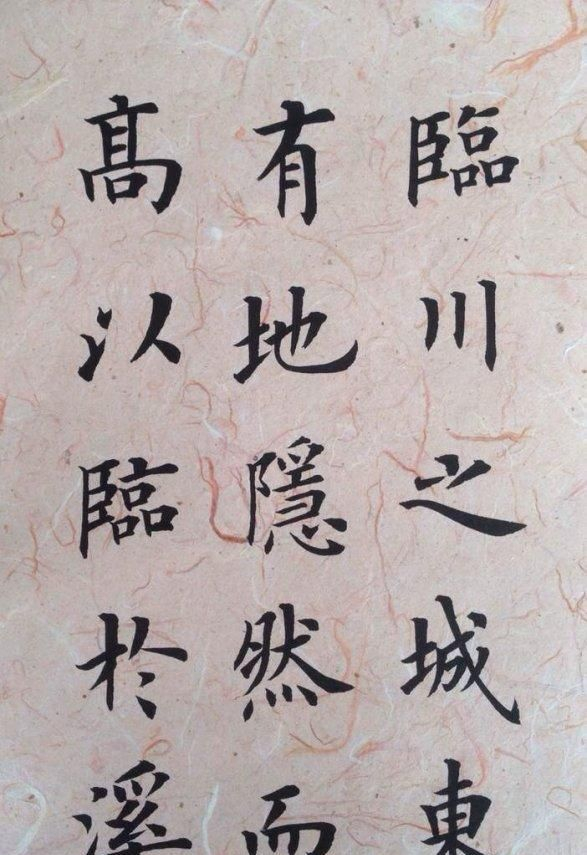 臨川之城東
有地隱然而
髙以臨於溪